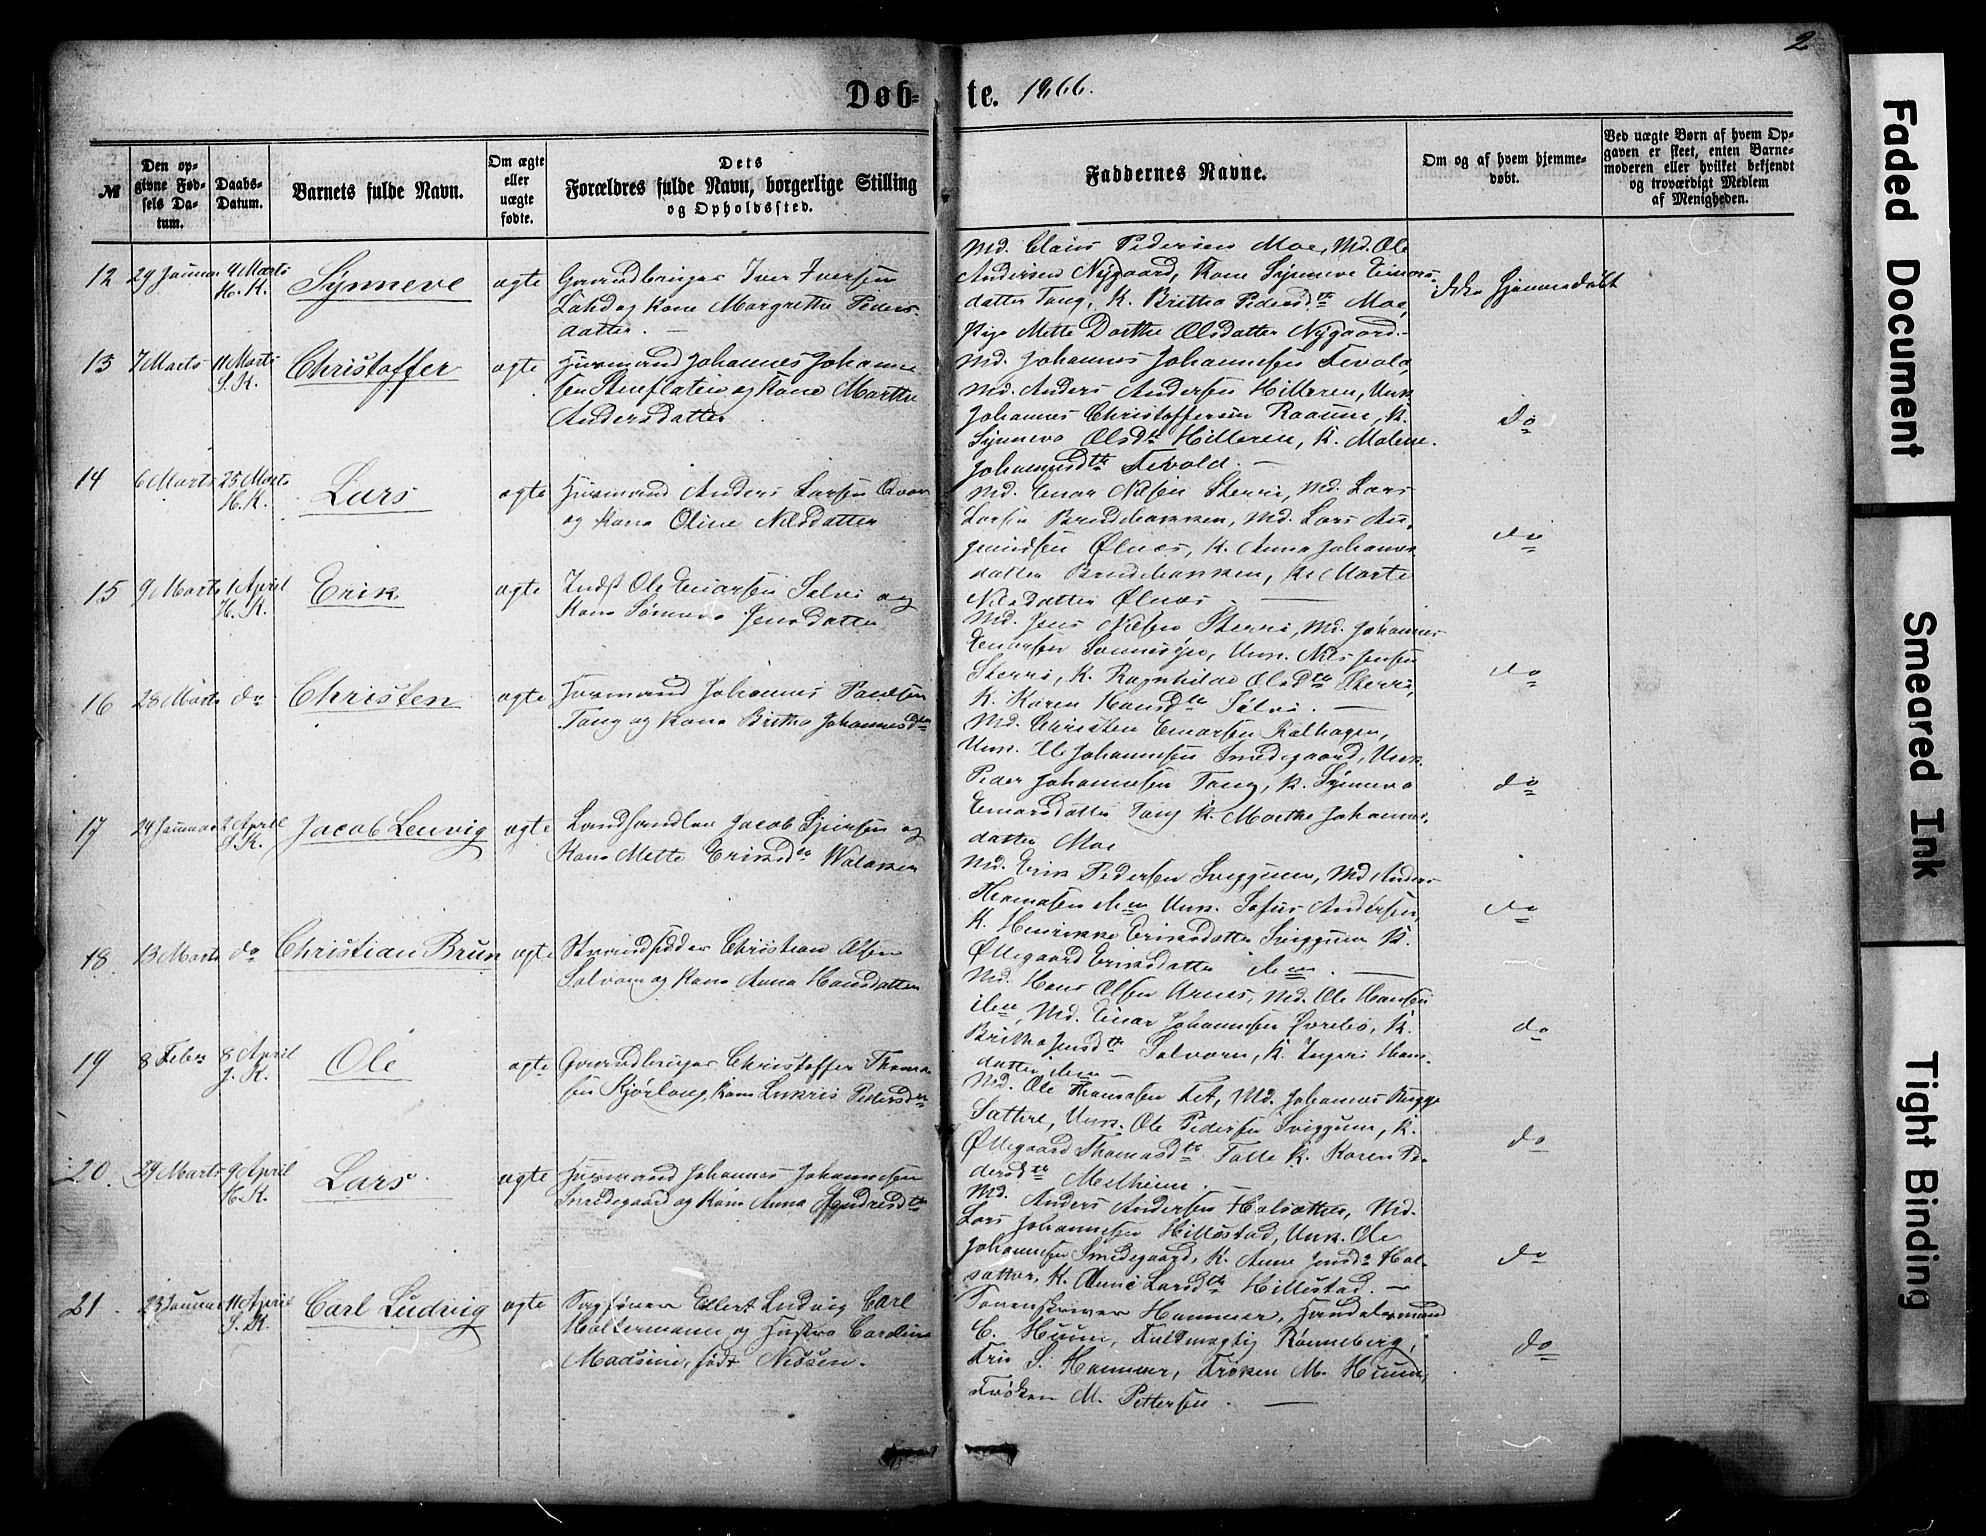 2
Døb-
te. 1866.
№
Den op-
givne Fød-
sels Da-
tum.
Daabs-
Datum.
Barnets fulde Navn.
Om ægte
eller
uægte
fødte.
Dets
Forældres fulde Navn, borgerlige Stilling
og Opholdssted.
Faddernes Navne.
Om og af hvem hjemme-
døbt.
Ved uægte Børn af hvem Op-
gaven er skeet, enten Barne-
moderen eller hvilket bekjendt
og troværdigt Medlem
af Menigheden.
12
29 Januar
4 Marts
H. K.
Synneve
ægte
Gaardbruger Iver Iversen
Lahd og Kone Margrethe Peders-
datter. —
Md. Claus Pedersen Moe, Md. Ole
Andersen Nygaard, Kone Synneve Einars-
datter Tang, K. Britha Pedersdtr Moe,
Pige Mette Dorthe Olsdatter Nygaard.
Ikke hjemmedøbt
13
7 Marts
11 Marts
S. K.
Christoffer
ægte
Huusmand Johannes Johanne-
sen og Kone Marthe
Andersdatter
Md. Johannes Johannesen Fevold
Md. Anders Andersen Hilleren, Unk.
Johannes Christoffersen Raaum, K.
Synneva Olsdtr Hilleren, K. Malene
Johannesdtr Fevold. —
do
14
6 Marts
25 Marts
H. K.
Lars
ægte
Huusmand Anders Larsen
og Kone Oline Nilsdatter
Md. Einar Nilsen Skerri, Md. Lars
Larsen, Md. Lars
Ølnes, K. Anna Johannes-
datter, K. Marte
Nilsdatter Ølnes. —
do
15
9 Marts
1 April
H. K.
Erik
ægte
Indst Ole Einarsen Sølvi og
Kone Synneva Jensdatter
Md. Jens Nilsen Skerri, Md. Johannes
Einarsen, Unk. Nils Jensen
Skerri, K. Ragnhilde Olsdtr Skerri,
K. Karen Hansdtr Sølvi. —
do
16
28 Marts
do
Christen
ægte
Huusmand Johannes Paulsen
Tang og Kone Britha Johannesdtr
Md. Christen Einarsen Kalhagen,
Unk. Ole Johannesen Smedegaard, Unk.
Peder Johannesen Tang, K. Synneva
Einarsdatter Tang K. Marthe Johannes-
datter Moe
do
17
24 Januar
2 April
S. K.
Jacob Leuvig
ægte
Landhandler Jacob og
Kone Mette Eriksdtr Walaker
Md. Erik Pedersen Sviggum, Md Anders
Thomasen Unk. Sofus Andersen,
K. Henrikke Eriksdatter Sviggum K.
Øllegaard Eriksdatter. —
do
18
13 Marts
do
Christian Brun
ægte
Strandsidder Christian Olsen
Solvorn og Kone Anna Hansdatter
Md. Hans Olsen Urnes, Md. Ole Hansen
Md. Einar Johannesen Øvrebø, K.
Britha Jensdtr Solvorn, K. Inger Hans-
datter —
do
19
8 Febr
8 April
J. K.
Ole
ægte
Gaardbruger Christoffer Thoma-
sen Kjørlaug, Kone Lukris Pedersdtr
Md. Ole Thomasen Fet, Md. Johannes
Unk. Ole Pedersen Sviggum, K.
Øllegaard Thomasdtr Talle K. Karen Pe-
dersdtr Melheim. —
do
20
29 Marts
9 April
H. K.
Lars
ægte
Huusmand Johannes Johannesen
Smedegaard og Kone Anna
Md. Anders Andersen, Md.
Lars Johannesen Hillestad, Unk. Ole
Johannesen Smedegaard, K. Anne Jensdtr
K. Larsdtr Hillestad. —
do
21
23 Januar
11 April
S. K.
Carl Ludvig
ægte
Sagfører Ellert Ludvig Carl
Holtermann og Hustru Carolina
Madsine, født Nissen.
Sorenskriver Hammer, Handelsmand
C. Huun, Fuldmægtig Rønneberg,
Fru S. Hammer, Frøken M. Huun,
Frøken M. Pettersen. —
do
Faded Document
Smeared Ink
Tight Binding